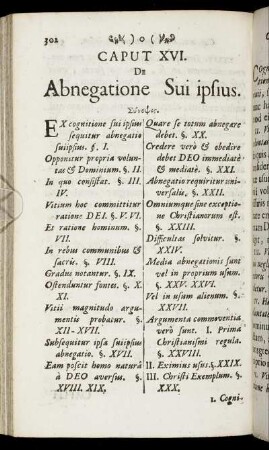 302 ) o (
CAPUT XVI.
DE
Abnegatione Sui ipsius.
Σύνοψις.
EX cognitione sui ipsius
sequitur abnegatio
suiipsius. §. I.
Opponitur propria volun-
tas & Dominium. §. II.
In quo consistat. §. III.
IV.
Vitium hoc committitur
ratione DEI. §. V. VI.
Et ratione hominum. §.
VII.
In rebus communibus &
sacris. §. VIII.
Gradus notantur. §. IX.
Ostenduntur fontes. §. X.
XI.
Vitii magnitudo argu-
mentis probatur. §.
XII-XVII.
Subsequitur ipsa suiipsius
abnegatio. §. XVII.
Eam poscit homo naturâ
à DEO aversus. §.
XVIII. XIX.
Quare se totum abnegare
debet. §. XX.
Credere verò & obedire
debet DEO immediatè
& mediatè. §. XXI.
Abnegatio requiritur uni-
versalis. §. XXII.
Omniumque sine exceptio-
ne Christianorum est.
§. XXIII.
Difficultas solvitur. §.
XXIV.
Media abnegationis sunt
vel in proprium usum.
§. XXV. XXVI.
Vel in usum alienum. §.
XXVII.
Argumenta commoventia
verò sunt. I. Prima
Christianismi regula.
§. XXVIII.
II. Eximius usus. §. XXIX.
III. Christi Exemplum. §.
XXX.
1. Cogni-